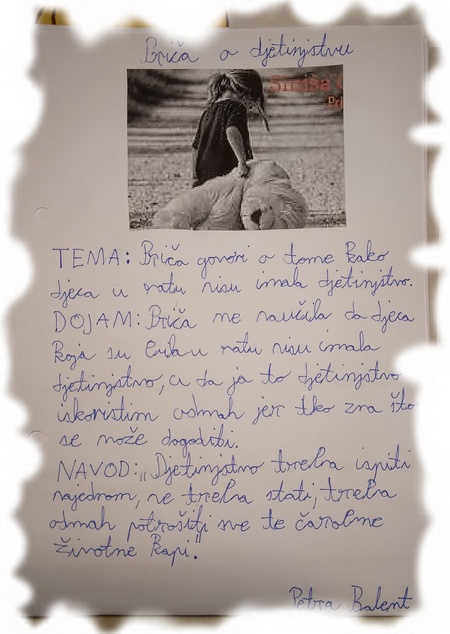 Priča o djetinjstvu
TEMA: Priča govori o tome kako
djeca u ratu nisu imala djetinjstvo.
DOJAM: Priča me naučila da djeca
koja su bila u ratu nisu imala
djetinjstvo, a da ja to djetinjstvo
iskoristim odmah jer tko zna što
se može dogoditi.
NAVOD: „Djetinjstvo treba ispiti
najednom, ne treba stati, treba
odmah potrošiti sve te čarobne
životne kapi."
Petra Balent